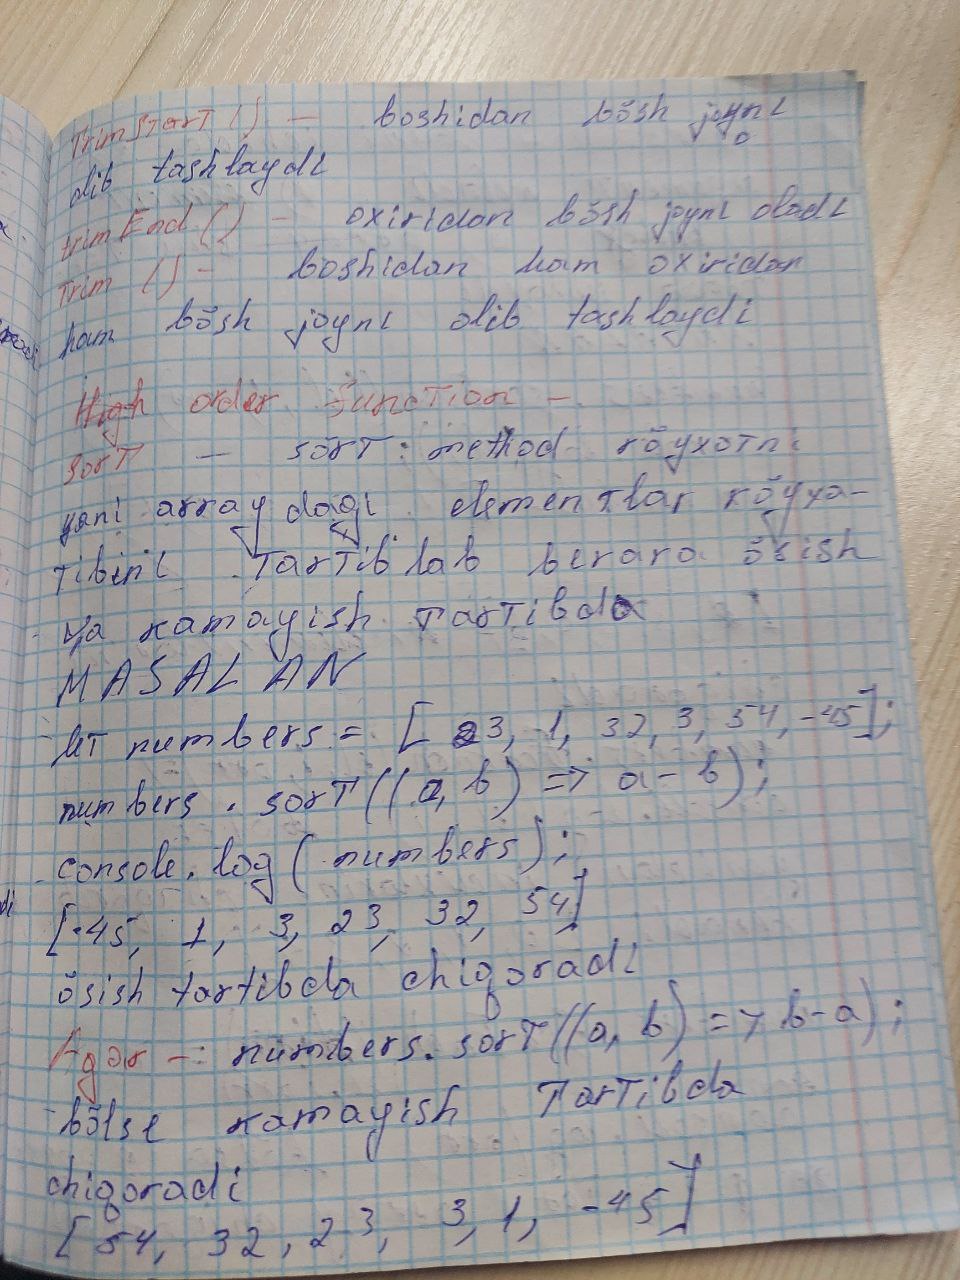 TrimStart () - boshidan bõsh joyni
olib tashlaydi
trim End () - oxiridan bõsh joyni oladi
Trim () - boshidan ham oxiridan
ham bõsh joyni olib tashlaydi
High order function -
sort - sort : method rõyxotni
yani array dagi elementlar rõyxa-
tibini tartiblab berara õsish
ya kamayish tartibda
MASALAN
let numbers = [23, 1, 32, 3, 54, -45];
numbers . sort((a, b) => a - b);
console.log(numbers);
[-45, 1, 3, 23, 32, 54]
õsish tartibda chiqoradi
Agar - : numbers. sort((a, b) => b-a);
bõlse kamayish tartibda
chiqoradi
[54, 32, 23, 3, 1, -45]